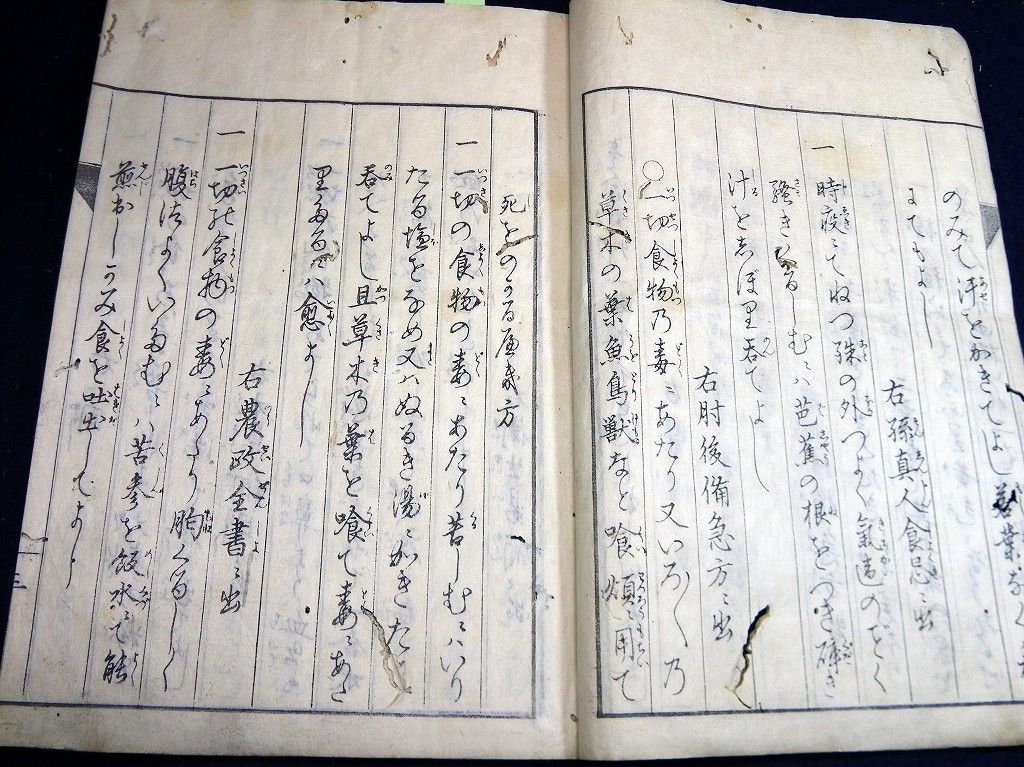 のみて汗をかきてよし若葉なくハ
にてもよし
右孫真人食忌ニ出
一 時疫ニてねつ殊の外つよく氣違のごとく
騒きくるしむニハ芭蕉の根をつき砕き
汁をしぼり呑てよし
右肘後備急方ニ出
○一切食物乃毒ニあたり又いろ〱乃
草木の葉魚鳥獣など喰煩ニ用て
死をのがるべき方
一 一切の食物の毒ニあたり苦しむニハいり
たる塩をなめ又ハぬるき湯ニかきたて
呑てよし且草木乃葉を喰て毒ニあた
りたるニハ愈よし
右農政全書ニ出
一 一切の食物の毒ニあたり胸くるしく
腹はりいたむニハ苦参を飯水ニて能
煎出しのみ食を吐出してよし
三